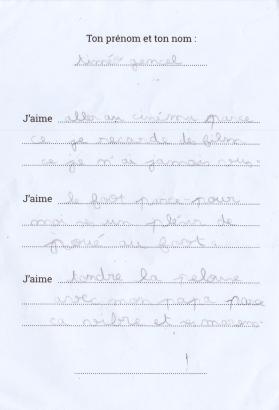 Ton prénom et ton nom :
gencel
J'aime aller au cinéma parce
ce je regarde de film
ce je n'ai jamais vus.
J'aime le foot parce pour
moi se un plésir de
joué au foot.
J'aime tondre la pelouse
avec mon papa parce
ca vibre et se marent